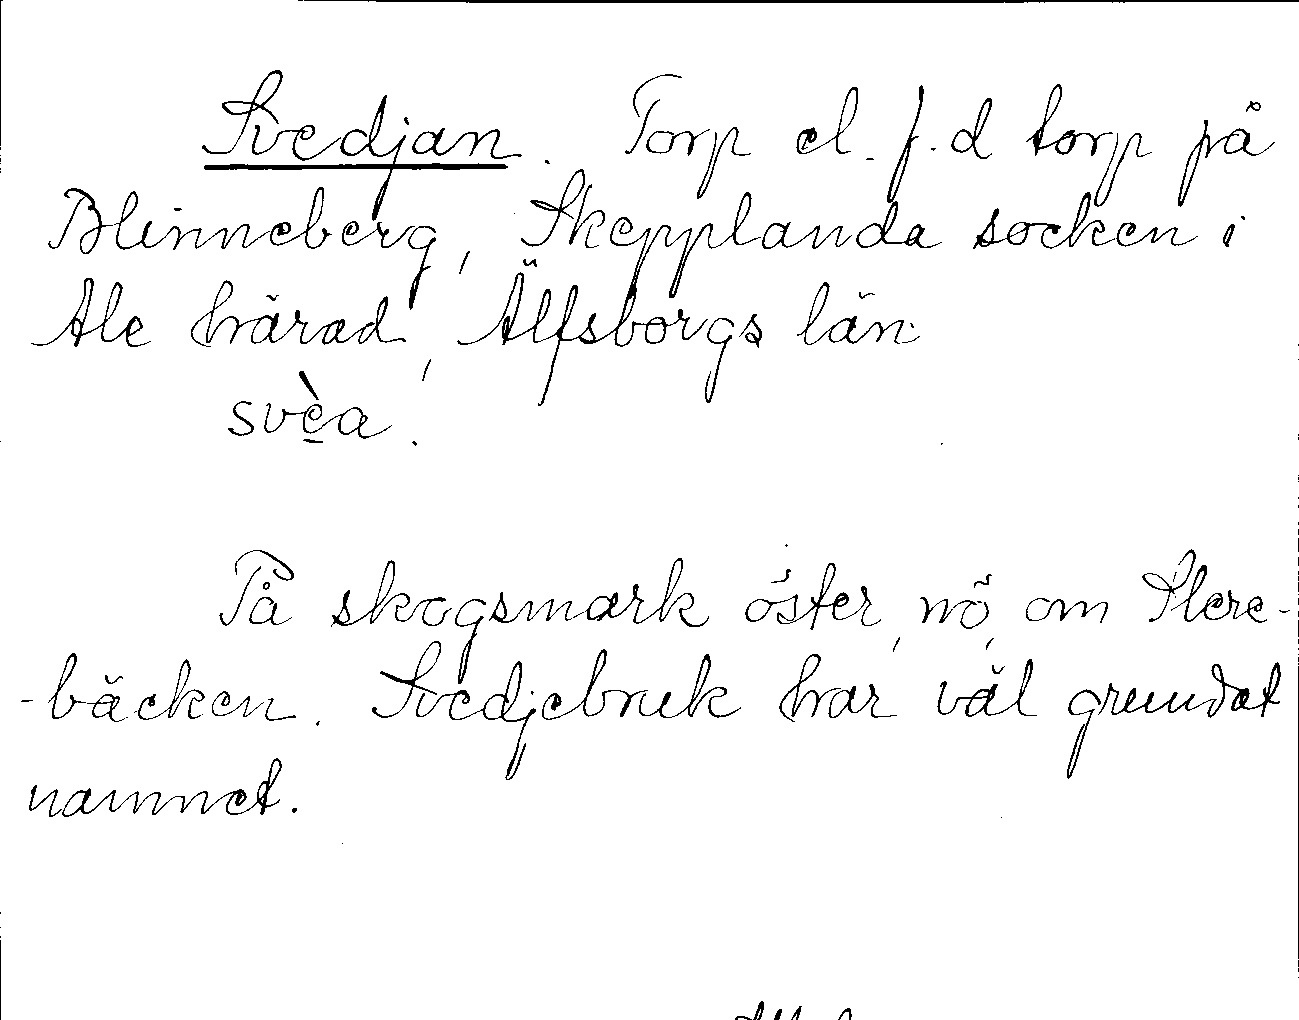 Svedjan. Torp el. f.d torp på
Blinneberg, Skepplanda socken i
Ale härad, Älfsborgs län
svè̱a.
På skogsmark öster, nö, om Slere-
-bäcken. Svedjebruk har väl grundat
namnet.